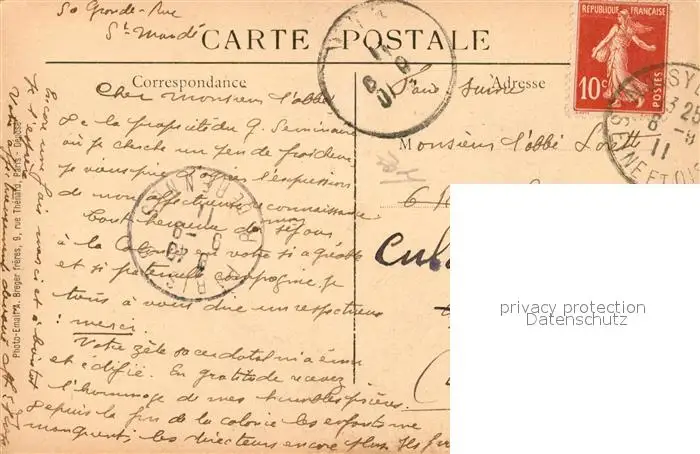 50 Grande-Rue
St Mandé
CARTE POSTALE
RÉPUBLIQUE FRANÇAISE
10c
POSTES
Correspondance
Adresse
Faire suivre
Cher Monsieur l'abbé
De la propriété du G. Seminaire
où je cherche un peu de froideur
je vous prie d'agréer l'expression
de mon affectueuse reconnaissance
Tout heureux de mon séjour
à la Colonie en votre si agréable
et si paternelle compagnie, je
tiens à vous dire un respectueux
merci.
Votre zèle sacerdotal m'a ému
et édifié. En gratitude recevez
l'hommage de mes humbles prières.
Depuis la fin de la colonie les enfants me
manquent, les directeurs encore plus. Ils
Encore une fois merci et à bientôt
je l'espère
Votre affectueusement dévoué
Photo-Email A. Breger frères, 9, rue Thénard, Paris - Déposé
Monsieur l'abbé
privacy protection
Datenschutz